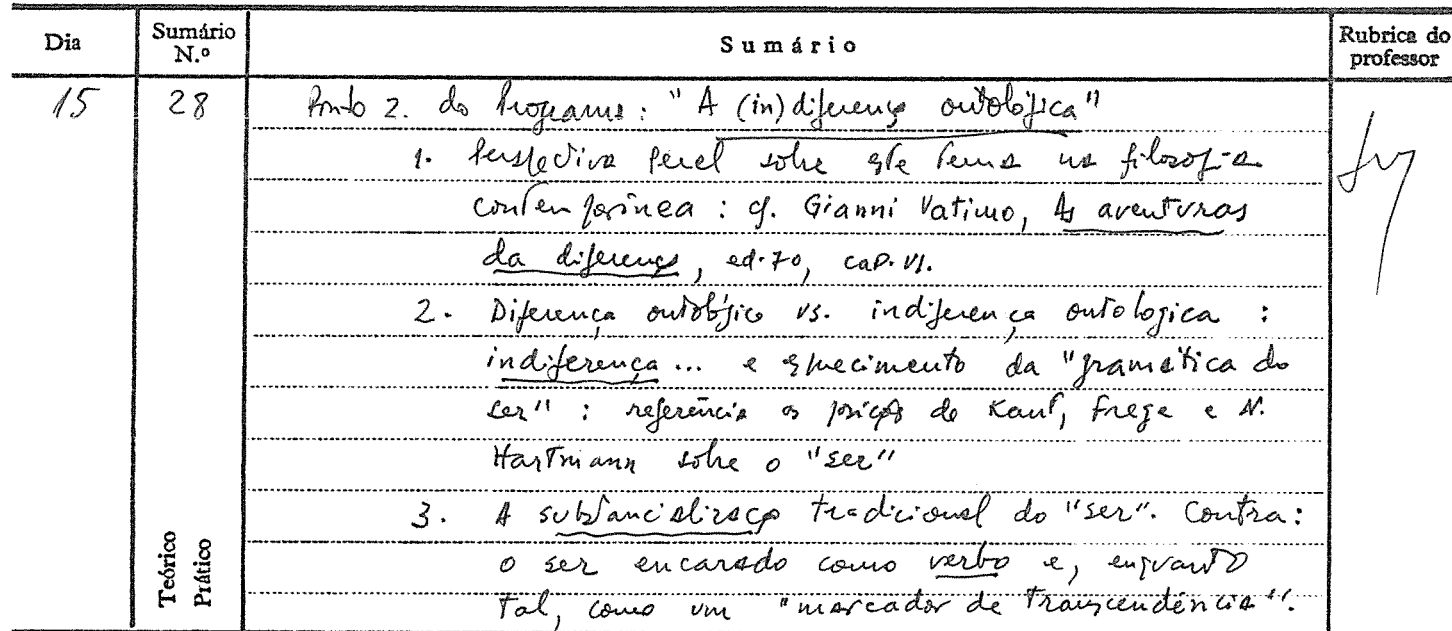 Dia Sumário N.º Sumário Rubrica do professor
15 28 Ponto 2. do Programa: "A (in)diferença ontológica"
1. Perspectiva geral sobre este tema na filosofia
contemporânea: cf. Gianni Vatimo, As aventuras
da diferença, ed. 70, cap. VI.
2. Diferença ontológica vs. indiferença ontologica:
indiferença... e esquecimento da "gramática do
ser": referência às posições de Kant, Frege e N.
Hartmann sobre o "ser"
3. A substancialização tradicional do "ser". Contra:
o ser encarado como verbo e, enquanto
tal, como um "marcador de transcendência".
Teórico
Prático